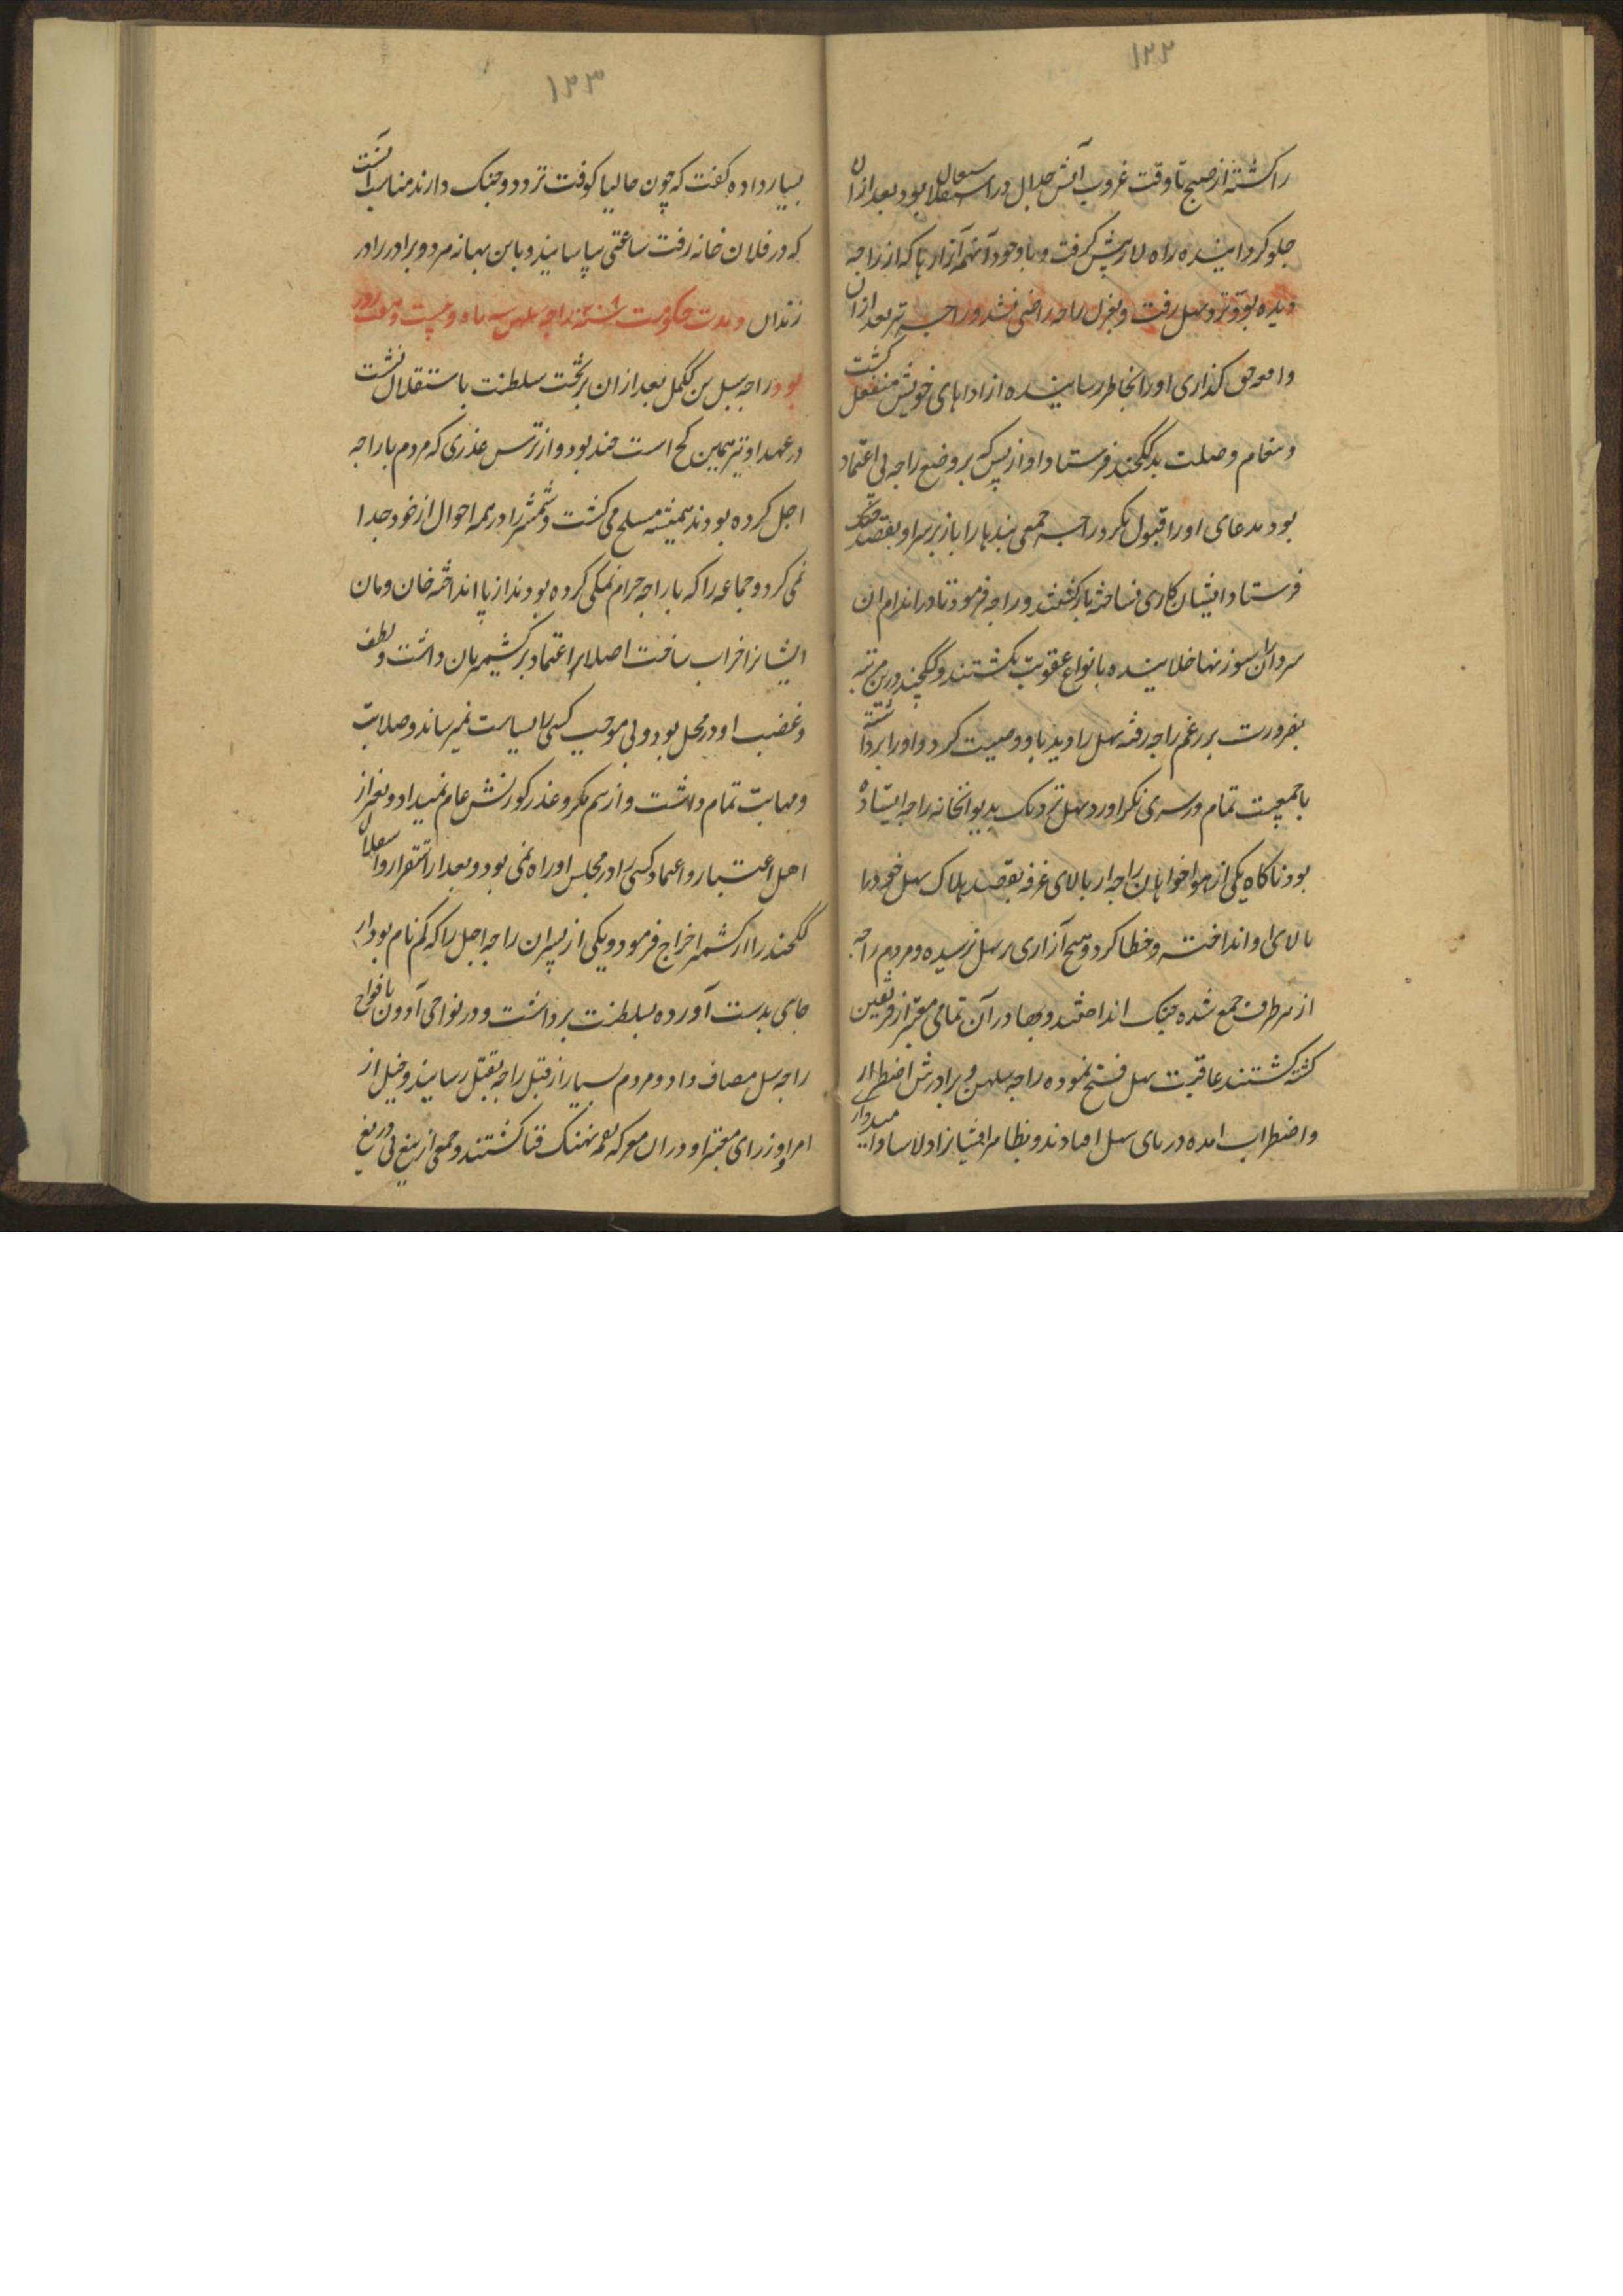 ۱۲۲
را کشته از صبح تا وقت غروب آتش جدال در اشتعال بود بعد ازان
جلو کردانیده راه لار پیش کرفت و با وجود آنهمه آزارها که از راجه
دیده بود نزد سهل رفت و بعزل راجه راضی نشد و راجه نیز بعد ازان
حق کذاری او را بخاطر رسانیده از اداهای خویش منفعل کشت
و پیغام وصلت به گگچند فرستاد او از بس که بر وضع راجه بی اعتماد
بود مدعای او را قبول نکرد راجه جمعی را باز بر سر او بقصد جنک
فرستاد ایشان کاری نساخته بازکشتند و راجه فرمود تا در اندام ان
سرداران سوزنها خلانیده بانواع عقوبت بکشتند و گگچند درین مرتبه
بضرورت بر رغم راجه رفته سهل را دید با او وصیت کرد و او را برداشته
با جمعیت تمام در سری نکر اورد و سهل نزدیک بدیوانخانه راجه ایستاده
بود ناکاه یکی از هواخواهان راجه از بالای غرفه بقصد هلاک سهل خود را
بالای او انداخت و خطا کرد و هیچ آزاری بر سهل نرسیده و مردم راجه
از هر طرف جمع شده جنک انداختند و بهادر آن نامی معتبر از فریقین
کشته کشتند عاقبت سهل فتح نموده راجه سلهن و برادرش اضطرار
و اضطراب امده در پای سهل افتادند و بظاهر ایشانرا دلاسا و امیدوار
۱۲۳
بسیار داده کفت که چون حالیا کوفت تردد و جنک دارند مناسب آنست
که در فلان خانه رفت ساعتی بیاسانید و باین بهانه هر دو برادر را در
زندان و مدت حکومت راجه سلهن سه ماه و بیست و هفت روز
بود راجه سسل بن گگمل بعد ازان بر تخت سلطنت باستقلال نشست
در عهد او نیز همین کج است چند بود و از ترس عذری که مردم با راجه
اجل کرده بودند همیشه مسلح می کشت و شمشیر را در همه احوال از خود جدا
نمی کرد و جماعه را که با راجه حرام نمکی کرده بودند از پا انداخته خان و مان
ایشانرا خراب ساخت اصلا بر اعتماد بر کشمیریان داشت و لطف
و غضب او در محل بود و بی موجب کسی را سیاست نمیرساند و صلابت
و مهابت تمام داشت و از سم مکر و عذر کورنش عام نمیداد و بغیر از
اهل اعتبار و اعتماد کسی را در مجلس او راه نمی بود و بعد از استقرار و استقلال
گگچند را از کشمیر اخراج فرمود و یکی از پسران راجه اجل را که کم نام بود از
جای بدست آورده بسلطنت برداشت و در نواحی آوون با فوج
راجه سسل مصاف داد و مردم بسیار از قبل راجه بقتل رسانید و خیل از
امرا و وزرای معتبر او دران معرکه لقمه نهنک فنا کشتند و جمعی از تیغ بی دریغ